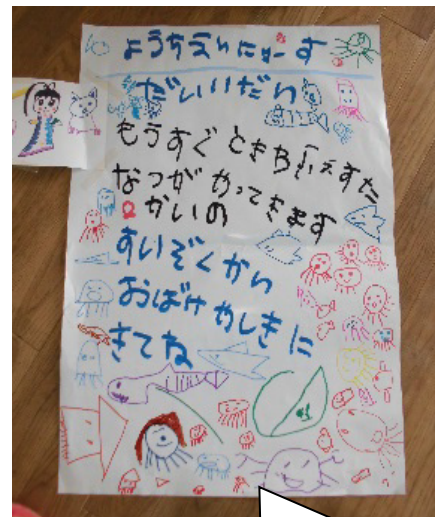 ようちえんにゅーす
だいいだい
もうすぐ ときわふぇすた
なつが やってきます
2かいの
すいぞくかん
おばけやしきに
きてね